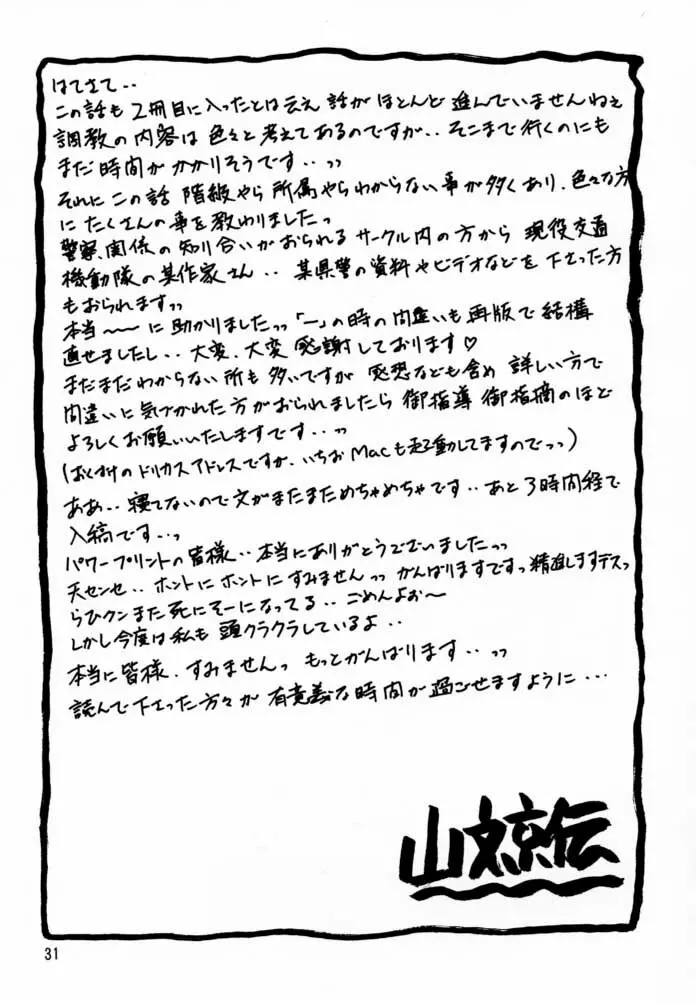 はてさて‥
この話も2冊目に入ったとは云え 話が ほとんど 進んでいませんねぇ
調教の内容は 色々と 考えてあるのですが‥そこまで行くのにも
まだ 時間が かかりそうです‥っっ
それに この話 階級やら 所属やらわからない事が多くあり、色々な方
に たくさんの事を教わりましたっ
警察関係の知り合いがおられる サークル内の方から 現役交通
機動隊の某作家さん‥ 某県警の資料やビデオなどを 下さった方
もおられますっっ
本当〜〜に 助かりましたっっ「一」の時の間違いも再版で結構
直せましたし‥大変、大変 感謝しております♡
まだまだわからない所も多いですが 感想なども含め 詳しい方で
間違いに気づかれた方がおられましたら 御指導 御指摘のほど
よろしくお願いいたしますです‥っっ
(おくずけのドリカスアドレスですが、いちおMacも起動してますのでっっ)
ああ‥寝てないので文がまたまためちゃめちゃです‥あと3時間程で
入稿です‥っ
パワープリントの皆様‥本当にありがとうございましたっっ
天センセ‥ホントにホントにすみませんっっ がんばりますですっ精進しますデスっ
らひクンまた死にそーになってる‥ごめんよぉ〜
しかし今度は私も 頭クラクラしているよ‥
本当に皆様、すみませんっ もっとがんばります‥っっ
読んで下さった方々が 有意義な時間が過ごせますように…
山文京伝
31